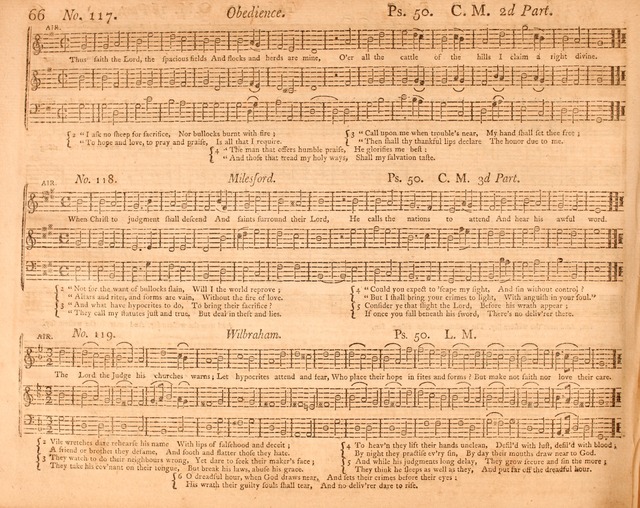 66 No. 117. Obedience. Ps. 50. C. M. 2d Part.
AIR.
Thus saith the Lord, the spacious fields And flocks and herds are mine, O'er all the cattle of the hills I claim a right divine.
2 " I ask no sheep for sacrifice, Nor bullocks burnt with fire ;
" To hope and love, to pray and praise, Is all that I require.
3 " Call upon me when trouble's near, My hand shall set thee free ;
" Then shall thy thankful lips declare The honor due to me.
4 " The man that offers humble praise, He glorifies me best :
" And those that tread my holy ways, Shall my salvation taste.
AIR. No. 118. Milesford. Ps. 50. C. M. 3d Part.
When Christ to judgment shall descend And saints surround their Lord, He calls the nations to attend And hear his awful word.
2 " Not for the want of bullocks slain, Will I the world reprove ;
" Altars and rites, and forms are vain, Without the fire of love.
3 " And what have hypocrites to do, To bring their sacrifice ?
" They call my statutes just and true, But deal in theft and lies.
4 " Could you expect to 'scape my sight, And sin without control ?
" But I shall bring your crimes to light, With anguish in your soul."
5 Consider ye that slight the Lord, Before his wrath appear ;
If once you fall beneath his sword, There's no deliv'rer there.
AIR. No. 119. Wilbraham. Ps. 50. L. M.
The Lord the Judge his churches warns ; Let hypocrites attend and fear, Who place their hope in rites and forms ? But make not faith nor love their care.
2 Vile wretches dare rehearse his name With lips of falsehood and deceit ;
A friend or brother they defame, And sooth and flatter those they hate.
3 They watch to do their neighbours wrong, Yet dare to seek their maker's face ;
They take his cov'nant on their tongue, But break his laws, abuse his grace.
4 To heav'n they lift their hands unclean, Defil'd with lust, defil'd with blood ;
By night they practise ev'ry sin, By day their mouths draw near to God.
5 And while his judgments long delay, They grow secure and sin the more ;
They think he sleeps as well as they, And put far off the dreadful hour.
6 O dreadful hour, when God draws near, And sets their crimes before their eyes ;
His wrath their guilty souls shall tear, And no deliv'rer dare to rise.